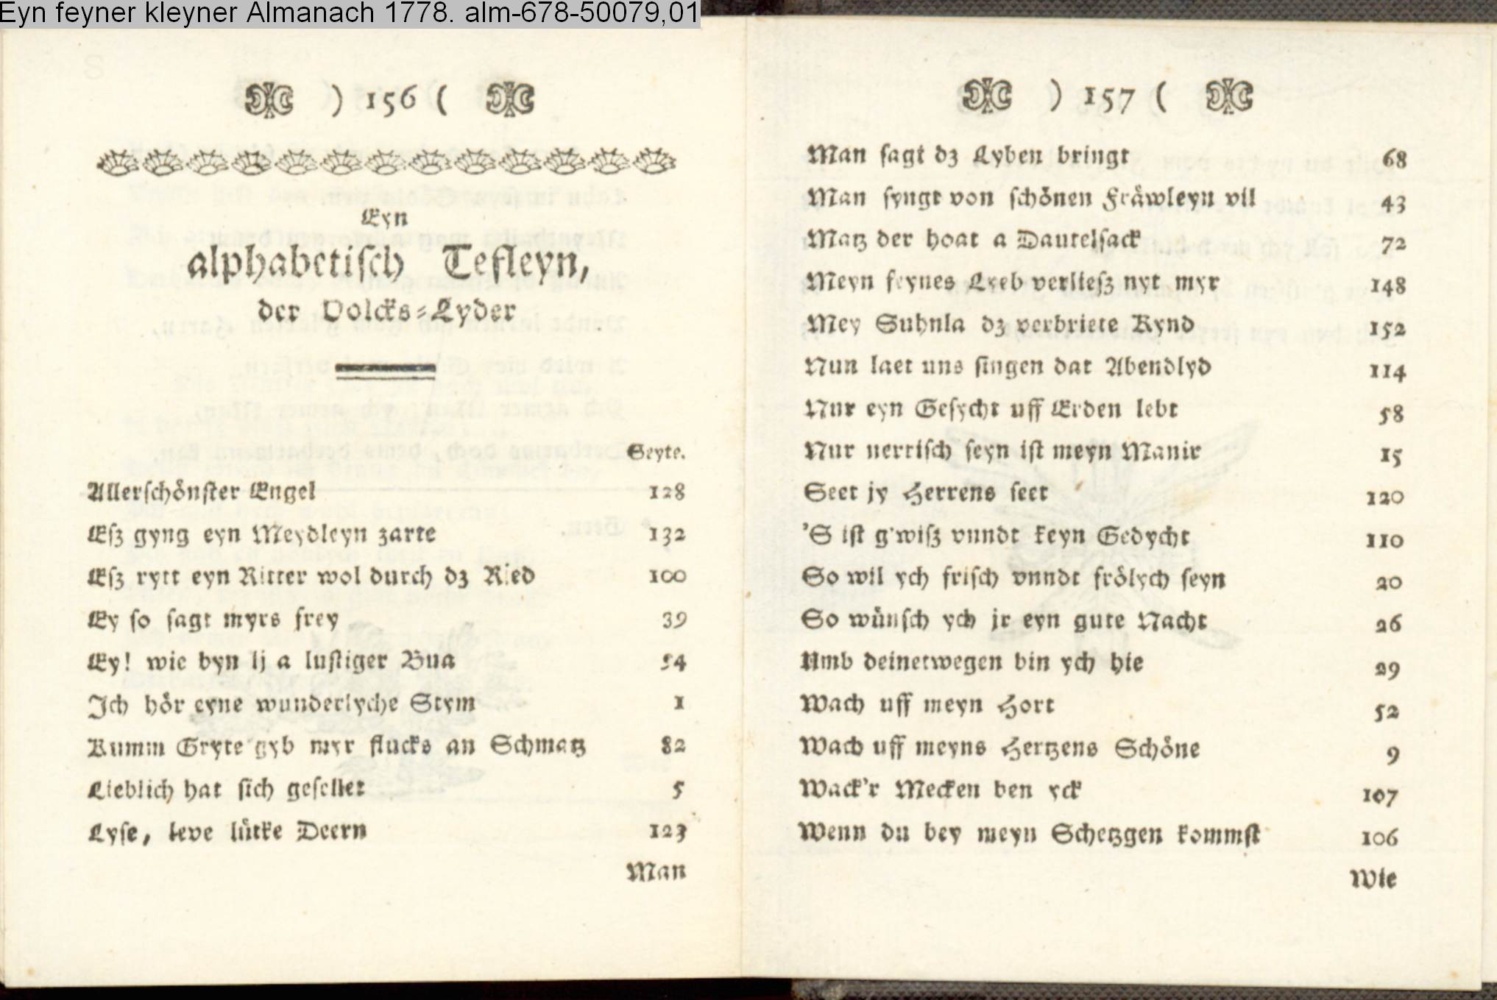 Eyn feyner kleyner Almanach 1778. alm-678-50079,01
) 156 (
Eyn
alphabetisch Tefleyn,
der Volcks-Lyder
Seyte.
Allerschönster Engel 128
Eſz gyng eyn Meydleyn zarte 132
Eſz rytt eyn Ritter wol durch dz Ried 100
Ey ſo ſagt myrs frey 39
Ey! wie byn Ij a luſtiger Bua 54
Ich hör eyne wunderlyche Stym 1
Kumm Gryte gyb myr flucks an Schmatz 82
Lieblich hat ſich geſellet 5
Lyſe, leve lütke Deern 123
Man
) 157 (
Man ſagt dz Lyben bringt 68
Man ſyngt von ſchönen Fräwleyn vil 43
Matz der hoat a Dautelſack 72
Meyn feynes Lyeb verlieſz nyt myr 148
Mey Suhnla dz verbriete Kynd 152
Nun laet uns ſingen dat Abendlyd 114
Nur eyn Geſycht uff Erden lebt 58
Nur nerriſch ſeyn iſt meyn Manir 15
Seet jy Herrens ſeet 120
'S iſt g'wiſz vnndt keyn Gedycht 110
So wil ych friſch vnndt frölych ſeyn 20
So wünſch ych jr eyn gute Nacht 26
Umb deinetwegen bin ych hie 29
Wach uff meyn Hort 52
Wach uff meyns Hertzens Schöne 9
Wack'r Mecken ben yck 107
Wenn du bey meyn Schetzgen kommſt 106
Wie